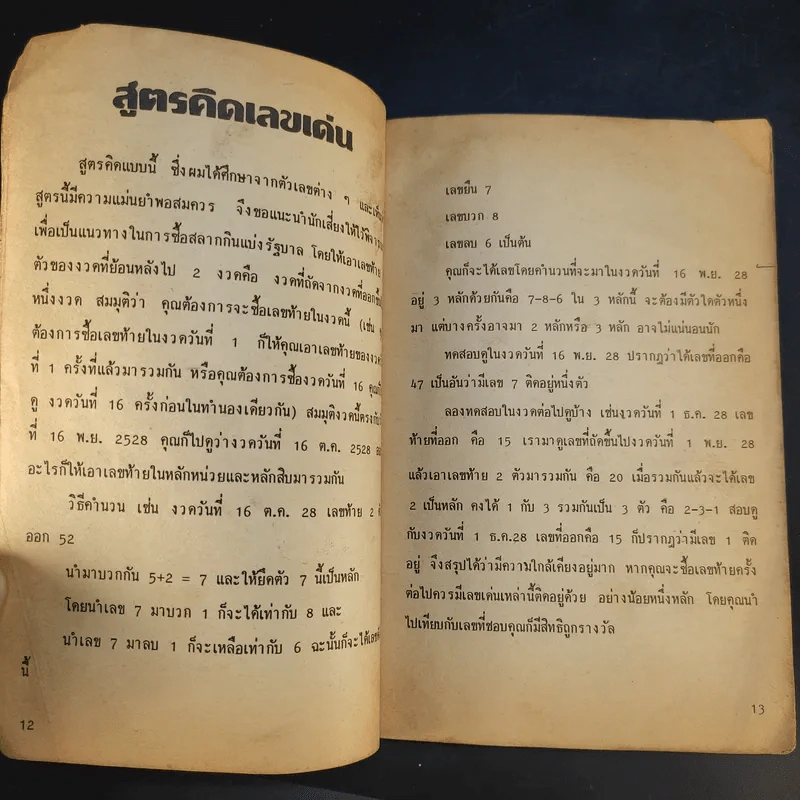 สูตรคิดเลขเด่น
สูตรคิดแบบนี้ ซึ่งผมได้ศึกษาจากตัวเลขต่าง ๆ และเห็น
สูตรนี้มีความแม่นยำพอสมควร จึงขอแนะนำนักเสี่ยงให้ไว้
เพื่อเป็นแนวทางในการซื้อสลากกินแบ่งรัฐบาล โดยให้เอาเลขท้าย
ตัวของงวดที่ย้อนหลังไป 2 งวดคือ งวดที่ถัดจากงวดที่ออกขึ้น
หนึ่งงวด สมมุติว่า คุณต้องการจะซื้อเลขท้ายในงวดนี้ (เช่น
ต้องการซื้อเลขท้ายในงวดวันที่ 1 ก็ให้คุณเอาเลขท้ายของงวด
ที่ 1 ครั้งที่แล้วมารวมกัน หรือคุณต้องการซื้องวดวันที่ 16 คุณก็
ดู งวดวันที่ 16 ครั้งก่อนในทำนองเดียวกัน) สมมุติงวดนี้ตรงกับ
ที่ 16 พ.ย. 2528 คุณก็ไปดูว่างวดวันที่ 16 ต.ค. 2528
อะไรก็ให้เอาเลขท้ายในหลักหน่วยและหลักสิบมารวมกัน
วิธีคำนวน เช่น งวดวันที่ 16 ต.ค. 28 เลขท้าย 2
ออก 52
นำมาบวกกัน 5+2 = 7 และให้ยึดตัว 7 นี้เป็นหลัก
โดยนำเลข 7 มาบวก 1 ก็จะได้เท่ากับ 8 และ
นำเลข 7 มาลบ 1 ก็จะเหลือเท่ากับ 6 ฉะนั้นก็จะได้เลข
นี้
12
เลขยืน 7
เลขบวก 8
เลขลบ 6 เป็นต้น
คุณก็จะได้เลขโดยคำนวนที่จะมาในงวดวันที่ 16 พ.ย. 28
อยู่ 3 หลักด้วยกันคือ 7-8-6 ใน 3 หลักนี้ จะต้องมีตัวใดตัวหนึ่ง
มา แต่บางครั้งอาจมา 2 หลักหรือ 3 หลัก อาจไม่แน่นอนนัก
ทดสอบดูในงวดวันที่ 16 พ.ย. 28 ปรากฏว่าได้เลขที่ออกคือ
47 เป็นอันว่ามีเลข 7 ติดอยู่หนึ่งตัว
ลองทดสอบในงวดต่อไปดูบ้าง เช่นงวดวันที่ 1 ธ.ค. 28 เลข
ท้ายที่ออก คือ 15 เรามาดูเลขที่ถัดขึ้นไปงวดวันที่ 1 พ.ย. 28
แล้วเอาเลขท้าย 2 ตัวมารวมกัน คือ 20 เมื่อรวมกันแล้วจะได้เลข
2 เป็นหลัก คงได้ 1 กับ 3 รวมกันเป็น 3 ตัว คือ 2-3-1 สอบดู
กับงวดวันที่ 1 ธ.ค.28 เลขที่ออกคือ 15 ก็ปรากฏว่ามีเลข 1 ติด
อยู่ จึงสรุปได้ว่ามีความใกล้เคียงอยู่มาก หากคุณจะซื้อเลขท้ายครั้ง
ต่อไปควรมีเลขเด่นเหล่านี้ติดอยู่ด้วย อย่างน้อยหนึ่งหลัก โดยคุณนำ
ไปเทียบกับเลขที่ชอบคุณก็มีสิทธิถูกรางวัล
13